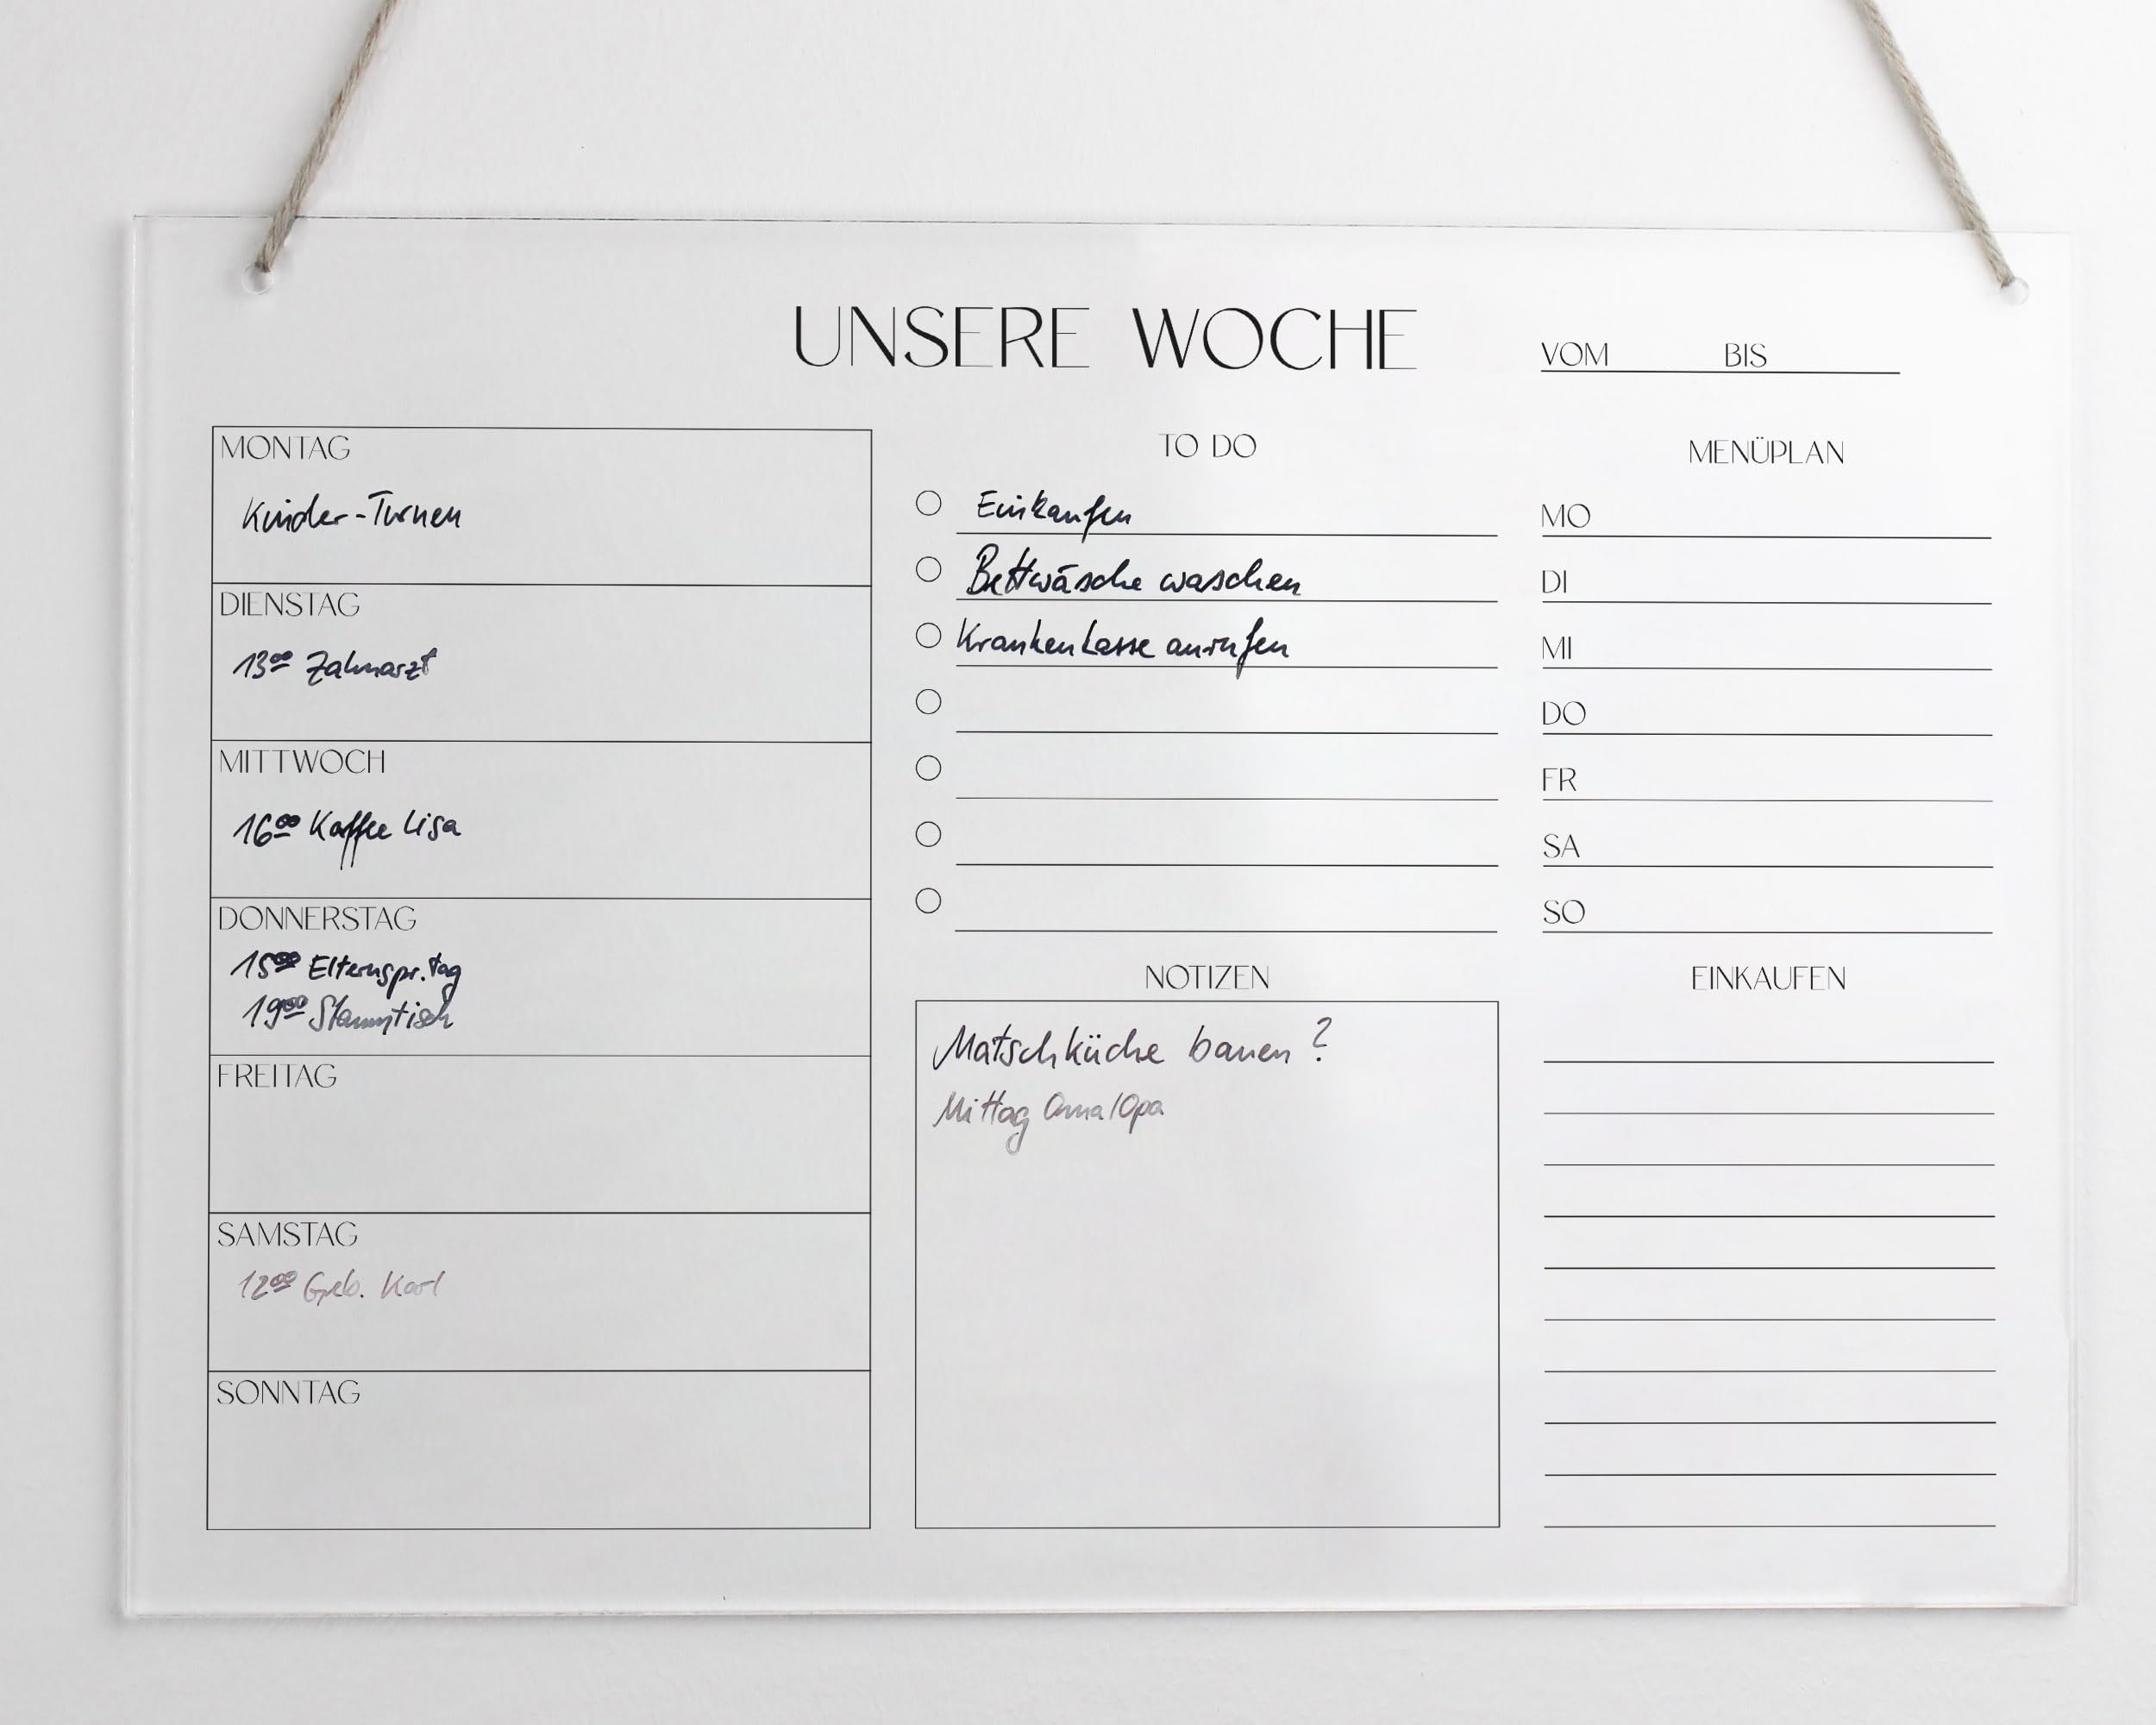 UNSERE WOCHE
VOM BIS
MONTAG
Kinder-Turnen
DIENSTAG
1300 Zahnarzt
MITTWOCH
1600 Kaffee Lisa
DONNERSTAG
1500 Elternspr.tag
1900 Stammtisch
FREITAG
SAMSTAG
1200 Geb. Karl
SONNTAG
TO DO
Einkaufen
Bettwäsche waschen
Krankenkasse anrufen
NOTIZEN
Matschküche bauen?
Mittag Oma/Opa
MENÜPLAN
MO
DI
MI
DO
FR
SA
SO
EINKAUFEN